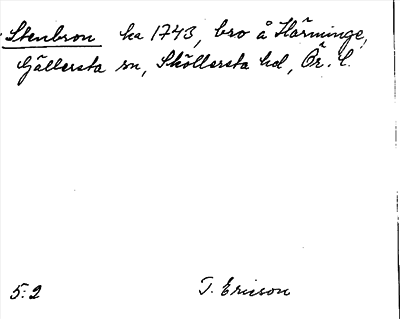 Stenbron ka 1743, bro å Härminge,
Gällersta sn, Sköllersta hd, Ör. l.
5:2 T. Ericson